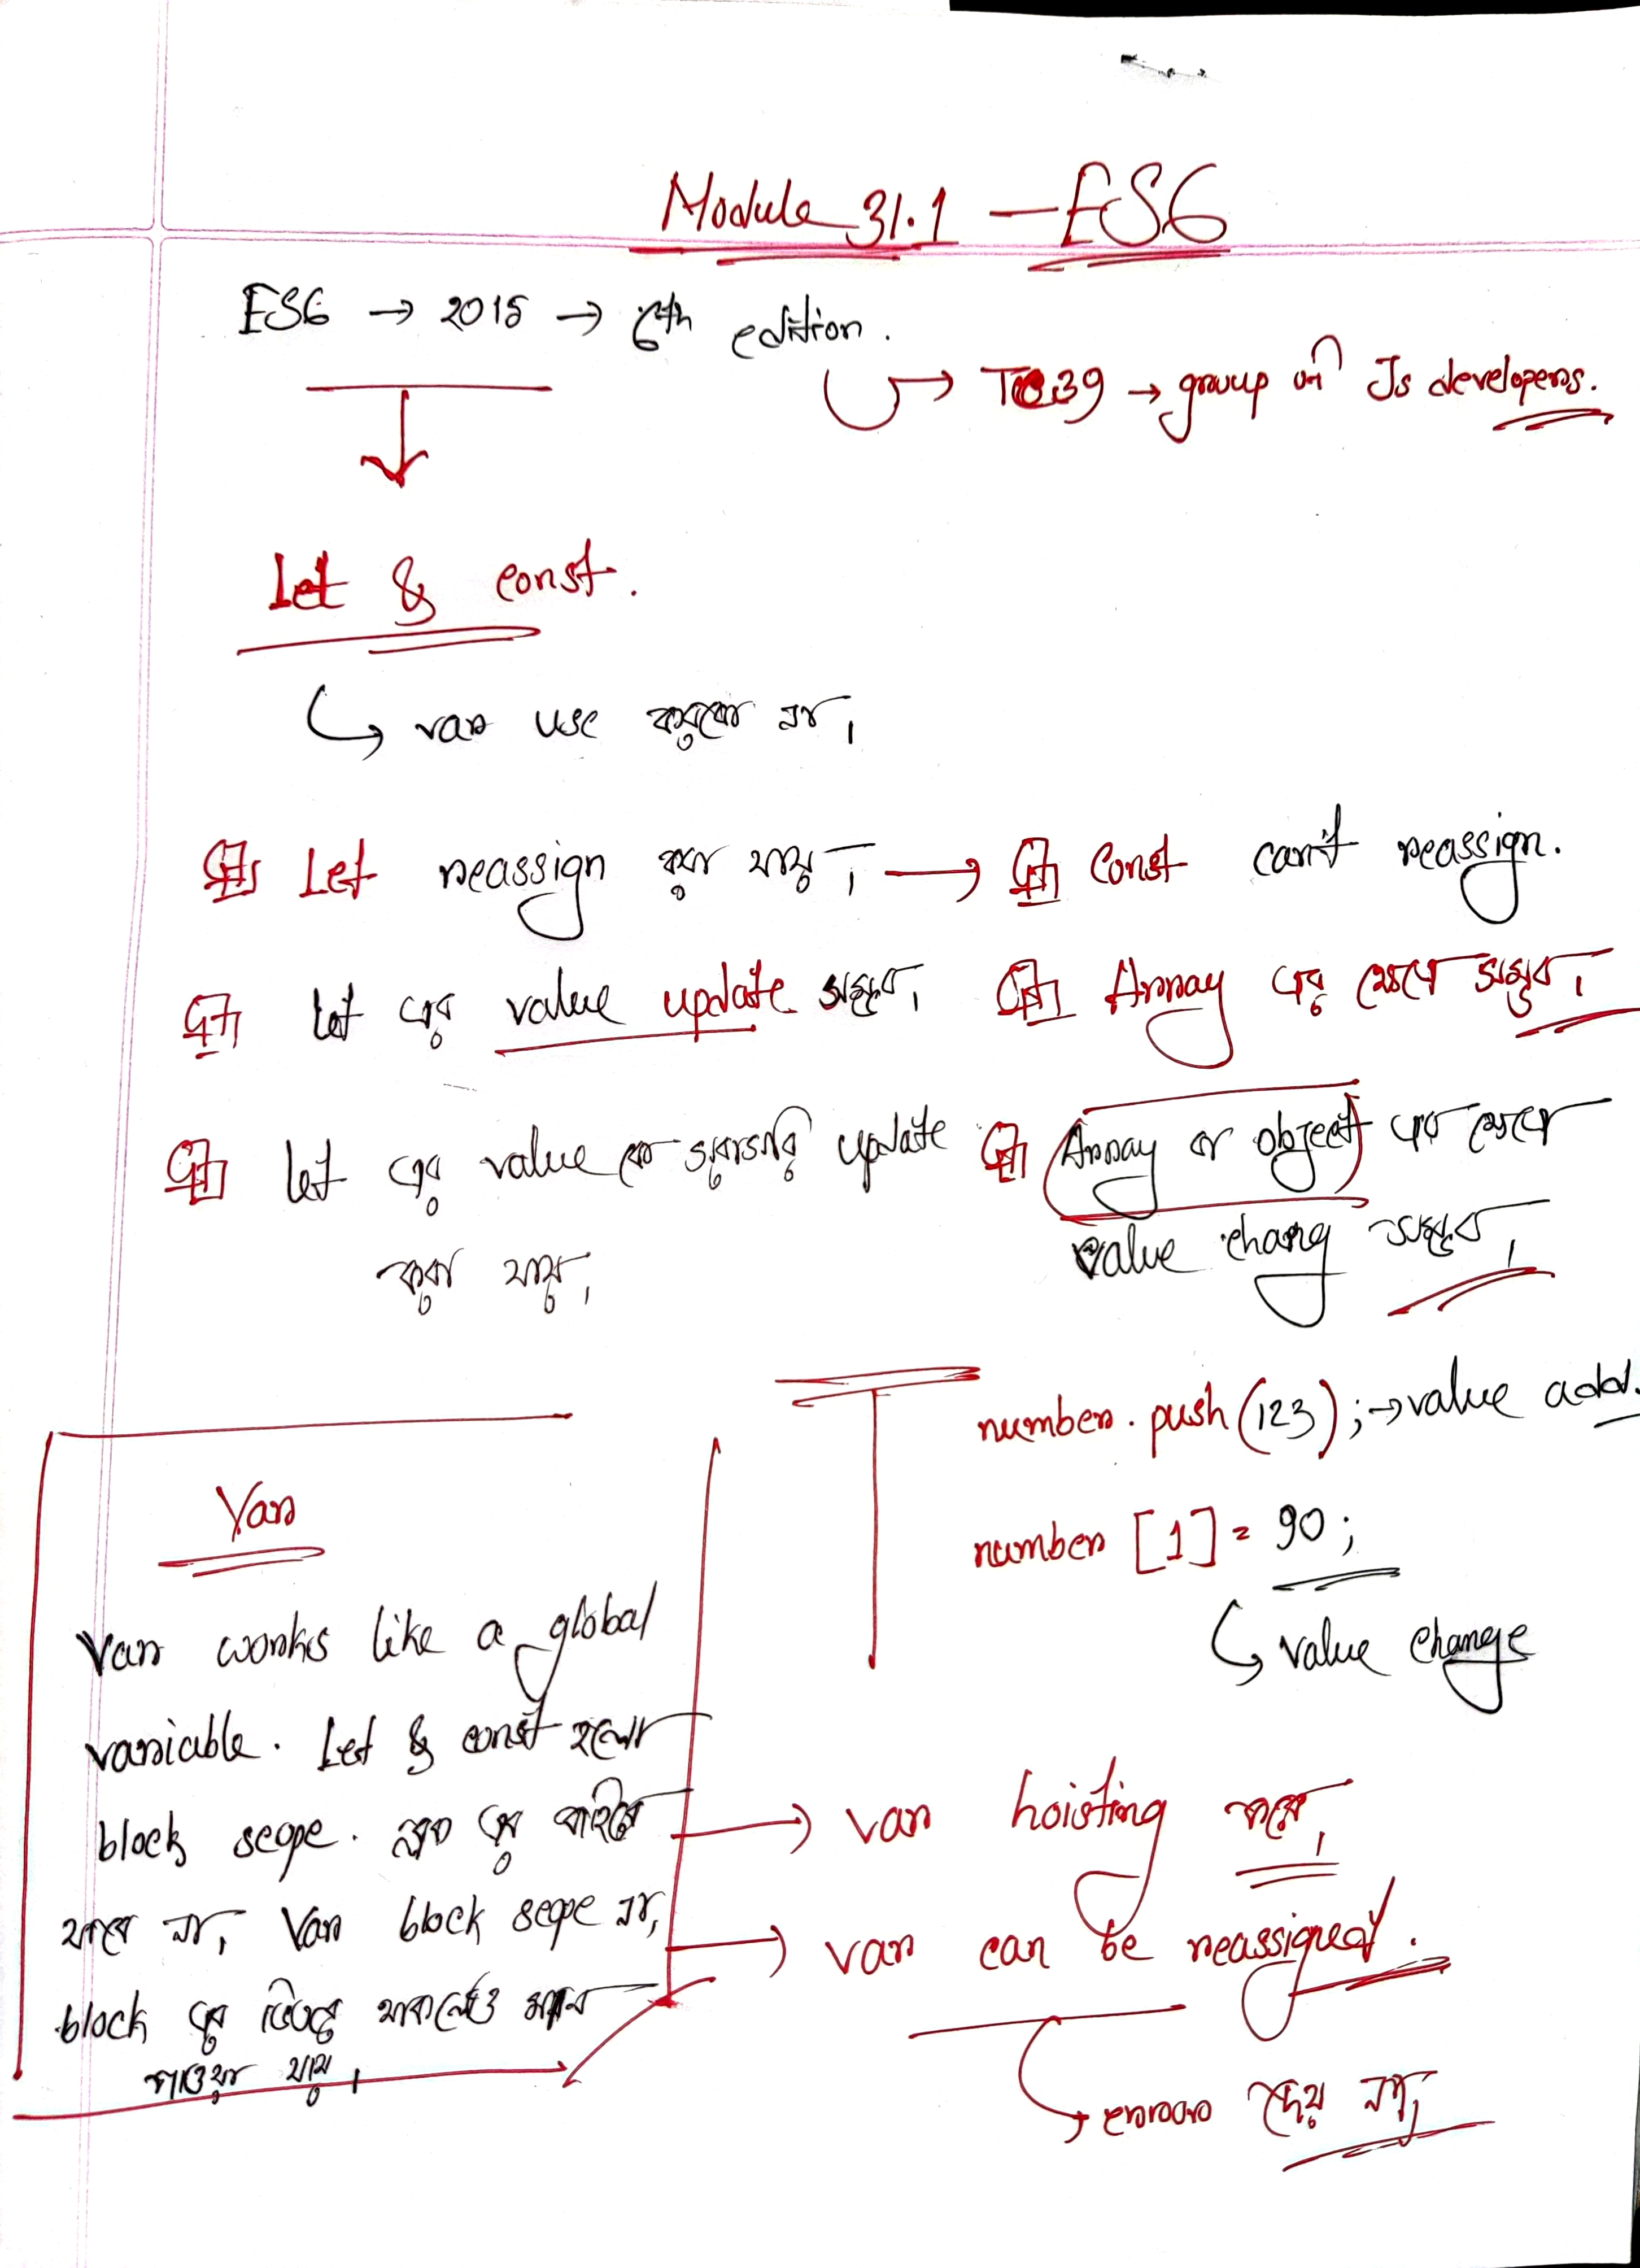 Module 31.1 — ES6
ES6 → 2015 → 6th edition.
→ TC39 → group of Js developers.
Let & const.
↳ var use করবো না।
Let reassign করা যায়। → const can't reassign.
let এর value update সম্ভব। Array এর ক্ষেত্রে সম্ভব।
let এর value কে সরাসরি update Array or object এর ক্ষেত্রে
করা যায়। value chang সম্ভব।
number.push(123); → value add.
number [1] = 90;
↳ value change
Var
Var works like a global
variable. Let & const হলো
block scope. ব্লক এর বাইরে
যাবে না। Var block scope না,
block এর ভিতরে থাকলেও মান
পাওয়া যায়।
→ var hoisting করে।
→ var can be reassigned.
→ error দেয় না।